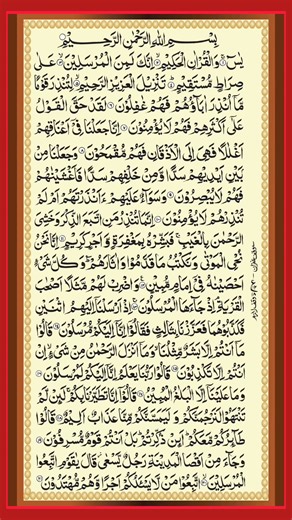 بِسْمِ اللهِ الرَّحْمٰنِ الرَّحِيْمِ
يٰسٓ ۝ وَالْقُرْاٰنِ الْحَكِيْمِ ۝ اِنَّكَ لَمِنَ الْمُرْسَلِيْنَ ۝ عَلٰى
صِرَاطٍ مُّسْتَقِيْمٍ ۝ تَنْزِيْلَ الْعَزِيْزِ الرَّحِيْمِ ۝ لِتُنْذِرَ قَوْمًا
مَّآ اُنْذِرَ اٰبَآؤُهُمْ فَهُمْ غٰفِلُوْنَ ۝ لَقَدْ حَقَّ الْقَوْلُ
عَلٰٓى اَكْثَرِهِمْ فَهُمْ لَا يُؤْمِنُوْنَ ۝ اِنَّا جَعَلْنَا فِيْٓ اَعْنَاقِهِمْ
اَغْلٰلًا فَهِيَ اِلَى الْاَذْقَانِ فَهُمْ مُّقْمَحُوْنَ ۝ وَجَعَلْنَا مِنْۢ
بَيْنِ اَيْدِيْهِمْ سَدًّا وَّمِنْ خَلْفِهِمْ سَدًّا فَاَغْشَيْنٰهُمْ
فَهُمْ لَا يُبْصِرُوْنَ ۝ وَسَوَآءٌ عَلَيْهِمْ ءَاَنْذَرْتَهُمْ اَمْ لَمْ
تُنْذِرْهُمْ لَا يُؤْمِنُوْنَ ۝ اِنَّمَا تُنْذِرُ مَنِ اتَّبَعَ الذِّكْرَ وَخَشِيَ
الرَّحْمٰنَ بِالْغَيْبِ ۚ فَبَشِّرْهُ بِمَغْفِرَةٍ وَّاَجْرٍ كَرِيْمٍ ۝ اِنَّا نَحْنُ
نُحْيِ الْمَوْتٰى وَنَكْتُبُ مَا قَدَّمُوْا وَاٰثَارَهُمْ ؕ وَكُلَّ شَيْءٍ
اَحْصَيْنٰهُ فِيْٓ اِمَامٍ مُّبِيْنٍ ۝ وَاضْرِبْ لَهُمْ مَّثَلًا اَصْحٰبَ
الْقَرْيَةِ ۘ اِذْ جَآءَهَا الْمُرْسَلُوْنَ ۝ اِذْ اَرْسَلْنَآ اِلَيْهِمُ اثْنَيْنِ
فَكَذَّبُوْهُمَا فَعَزَّزْنَا بِثَالِثٍ فَقَالُوْٓا اِنَّآ اِلَيْكُمْ مُّرْسَلُوْنَ ۝ قَالُوْا
مَآ اَنْتُمْ اِلَّا بَشَرٌ مِّثْلُنَا ۙ وَمَآ اَنْزَلَ الرَّحْمٰنُ مِنْ شَيْءٍ ۙ اِنْ
اَنْتُمْ اِلَّا تَكْذِبُوْنَ ۝ قَالُوْا رَبُّنَا يَعْلَمُ اِنَّآ اِلَيْكُمْ لَمُرْسَلُوْنَ ۝
وَمَا عَلَيْنَآ اِلَّا الْبَلٰغُ الْمُبِيْنُ ۝ قَالُوْٓا اِنَّا تَطَيَّرْنَا بِكُمْ ۚ لَئِنْ لَّمْ
تَنْتَهُوْا لَنَرْجُمَنَّكُمْ وَلَيَمَسَّنَّكُمْ مِّنَّا عَذَابٌ اَلِيْمٌ ۝ قَالُوْا
طَآئِرُكُمْ مَّعَكُمْ ؕ اَئِنْ ذُكِّرْتُمْ ؕ بَلْ اَنْتُمْ قَوْمٌ مُّسْرِفُوْنَ ۝
وَجَآءَ مِنْ اَقْصَا الْمَدِيْنَةِ رَجُلٌ يَّسْعٰى قَالَ يٰقَوْمِ اتَّبِعُوا
الْمُرْسَلِيْنَ ۝ اتَّبِعُوْا مَنْ لَّا يَسْئَلُكُمْ اَجْرًا وَّهُمْ مُّهْتَدُوْنَ ۝